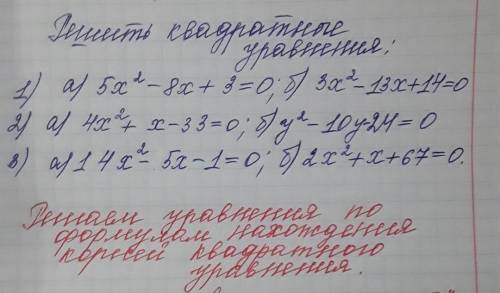 Решить квадратные
уравнения:
1) а) 5x² - 8x + 3 = 0; б) 3x² - 13x + 14 = 0
2) а) 4x² + x - 33 = 0; б) y² - 10y - 24 = 0
3) а) 14x² - 5x - 1 = 0; б) 2x² + x + 67 = 0.
Решаем уравнения по
формулам нахождения
корней квадратного
уравнения.